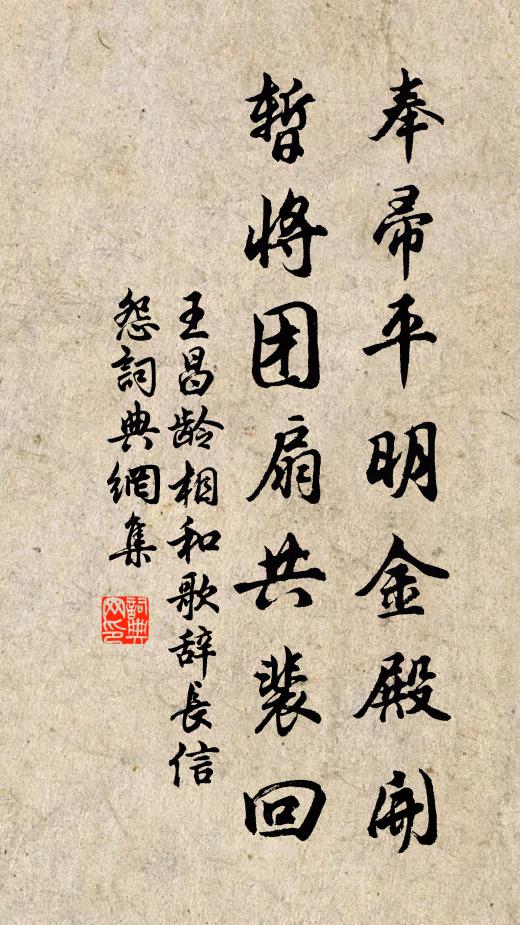 奉帚平明金殿開
暫將团扇共裴回
王昌龄相和歌辞長信
怨詞典網集
詞典
网印